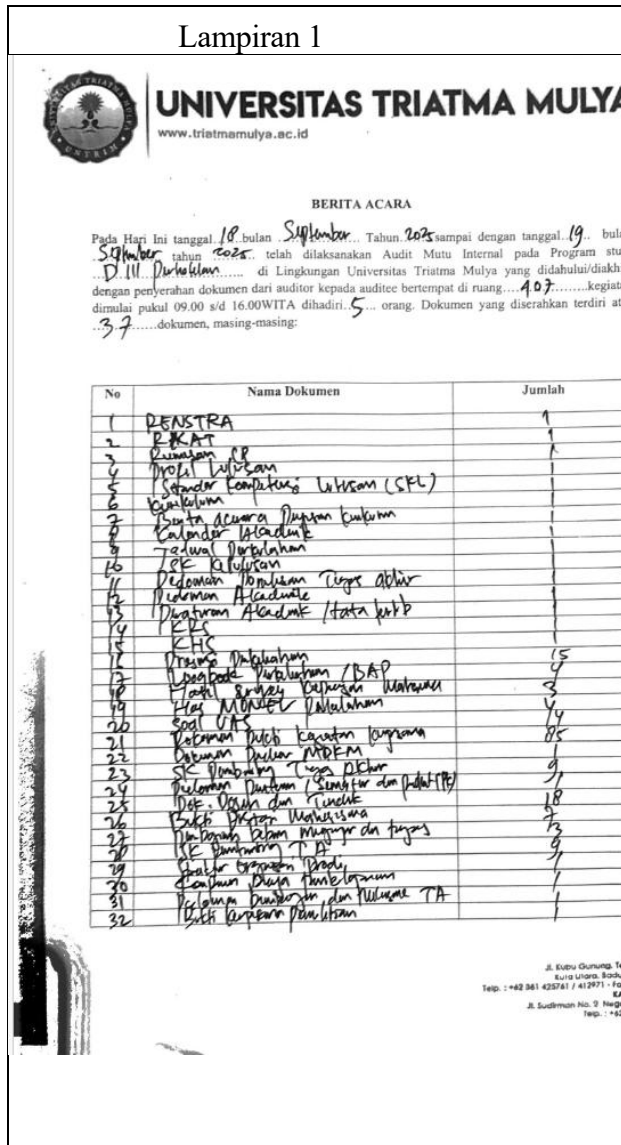 Lampiran 1
UNIVERSITAS TRIATMA MULYA
www.triatmamulya.ac.id
UNTRIM
BERITA ACARA
Pada Hari Ini tanggal 18 bulan September Tahun 2025 sampai dengan tanggal 19 bula
September tahun 2025 telah dilaksanakan Audit Mutu Internal pada Program stu
D III Perhotelan di Lingkungan Universitas Triatma Mulya yang didahului/diakh
dengan penyerahan dokumen dari auditor kepada auditee bertempat di ruang 407 kegiata
dimulai pukul 09.00 s/d 16.00WITA dihadiri 5 orang. Dokumen yang diserahkan terdiri at
37 dokumen, masing-masing:
No Nama Dokumen Jumlah
1 RENSTRA 1
2 RKAT 1
3 Rumusan CP 1
4 Profil Lulusan 1
5 Standar Kompetensi Lulusan (SKL) 1
6 Kurikulum
7 Berita acara kurikulum
8 Kalender Akademik
9 Jadwal Perkuliahan
10 SK Kelulusan
11 Pedoman Tugas akhir
12 Pedoman Akademik
13 Peraturan Akademik / tata tertib
14 KRS
15 KHS
16 Presensi Perkuliahan 15
17 Logbook Perkuliahan / BAP 4
18 Hasil Survey Kepuasan Mahasiswa 3
19 MONEV Perkuliahan 4
20 Soal UAS 14
21 Bukti Kegiatan 85
22 Dokumen MBKM 1
23 SK Pembimbing Tugas Akhir 9
24 Pedoman 1
25 Dok. Dosen dan Tendik 18
26 Bukti Mahasiswa 7
27 beban mengajar dan tugas 3
28 SK Pembimbing TA 9
29 Struktur Organisasi Prodi 1
30 1
31 Pedoman Bimbingan dan TA 1
32 Bukti 1
Jl. Kubu Gunung, Te
Kuta Utara, Badu
Telp. : +62 361 425761 / 412971 - Fa
KA
Jl. Sudirman No. 2 Nega
Telp. : +62